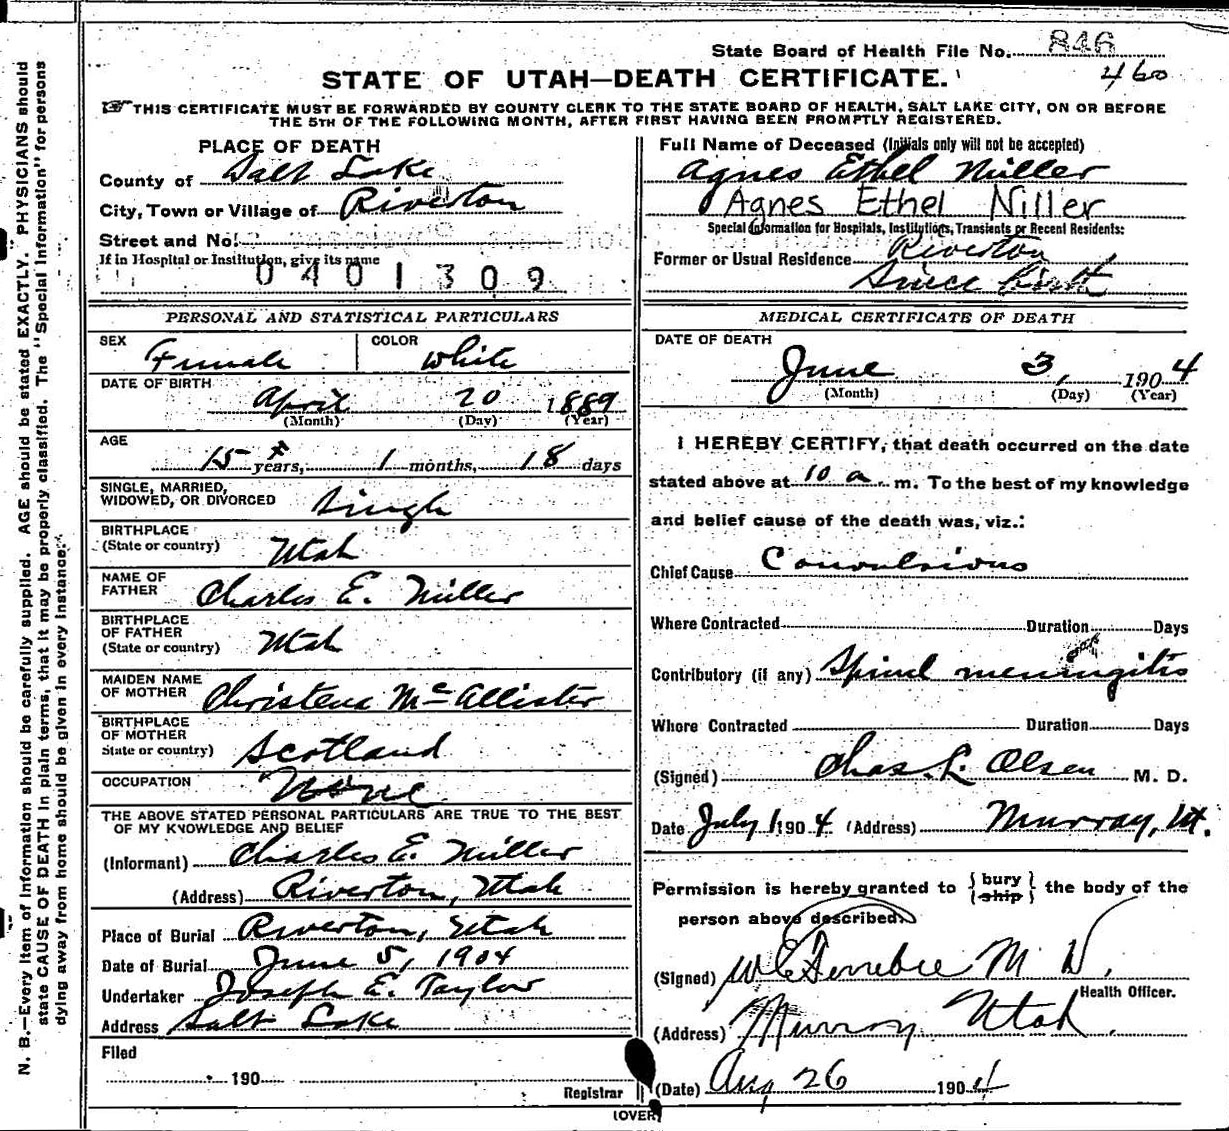 State Board of Health File No. 846
460
STATE OF UTAH—DEATH CERTIFICATE.
THIS CERTIFICATE MUST BE FORWARDED BY COUNTY CLERK TO THE STATE BOARD OF HEALTH, SALT LAKE CITY, ON OR BEFORE
THE 5TH OF THE FOLLOWING MONTH, AFTER FIRST HAVING BEEN PROMPTLY REGISTERED.
PLACE OF DEATH
County of Salt Lake
City, Town or Village of Riverton
Street and No.
If in Hospital or Institution, give its name
0401309
Full Name of Deceased (Initials only will not be accepted)
Agnes Ethel Miller
Agnes Ethel Niller
Special Information for Hospitals, Institutions, Transients or Recent Residents:
Former or Usual Residence Riverton
Since birth
PERSONAL AND STATISTICAL PARTICULARS
SEX Female COLOR White
DATE OF BIRTH
April 20 1889
(Month) (Day) (Year)
AGE
15 years, 1 months, 18 days
SINGLE, MARRIED,
WIDOWED, OR DIVORCED Single
BIRTHPLACE
(State or country) Utah
NAME OF
FATHER Charles E. Miller
BIRTHPLACE
OF FATHER
(State or country) Utah
MAIDEN NAME
OF MOTHER Christena McAllister
BIRTHPLACE
OF MOTHER
State or country) Scotland
OCCUPATION None
THE ABOVE STATED PERSONAL PARTICULARS ARE TRUE TO THE BEST
OF MY KNOWLEDGE AND BELIEF
(Informant) Charles E. Miller
(Address) Riverton, Utah
Place of Burial Riverton, Utah
Date of Burial June 5, 1904
Undertaker Joseph E. Taylor
Address Salt Lake
Filed
190
Registrar
MEDICAL CERTIFICATE OF DEATH
DATE OF DEATH
June 3, 1904
(Month) (Day) (Year)
I HEREBY CERTIFY, that death occurred on the date
stated above at 10 a. m. To the best of my knowledge
and belief cause of the death was, viz.:
Chief Cause Convulsions
Where Contracted Duration Days
Contributory (if any) Spinal meningitis
Where Contracted Duration Days
(Signed) Chas. L. Olsen M. D.
Date July 1 1904 (Address) Murray, Ut.
Permission is hereby granted to {bury
(ship) the body of the
person above described.
(Signed) M D.
Health Officer.
(Address) Murray Utah.
(Date) Aug 26 1904
(OVER)
N. B.—Every item of information should be carefully supplied. AGE should be stated EXACTLY. PHYSICIANS should
state CAUSE OF DEATH in plain terms, that it may be properly classified. The "Special Information" for persons
dying away from home should be given in every instance.